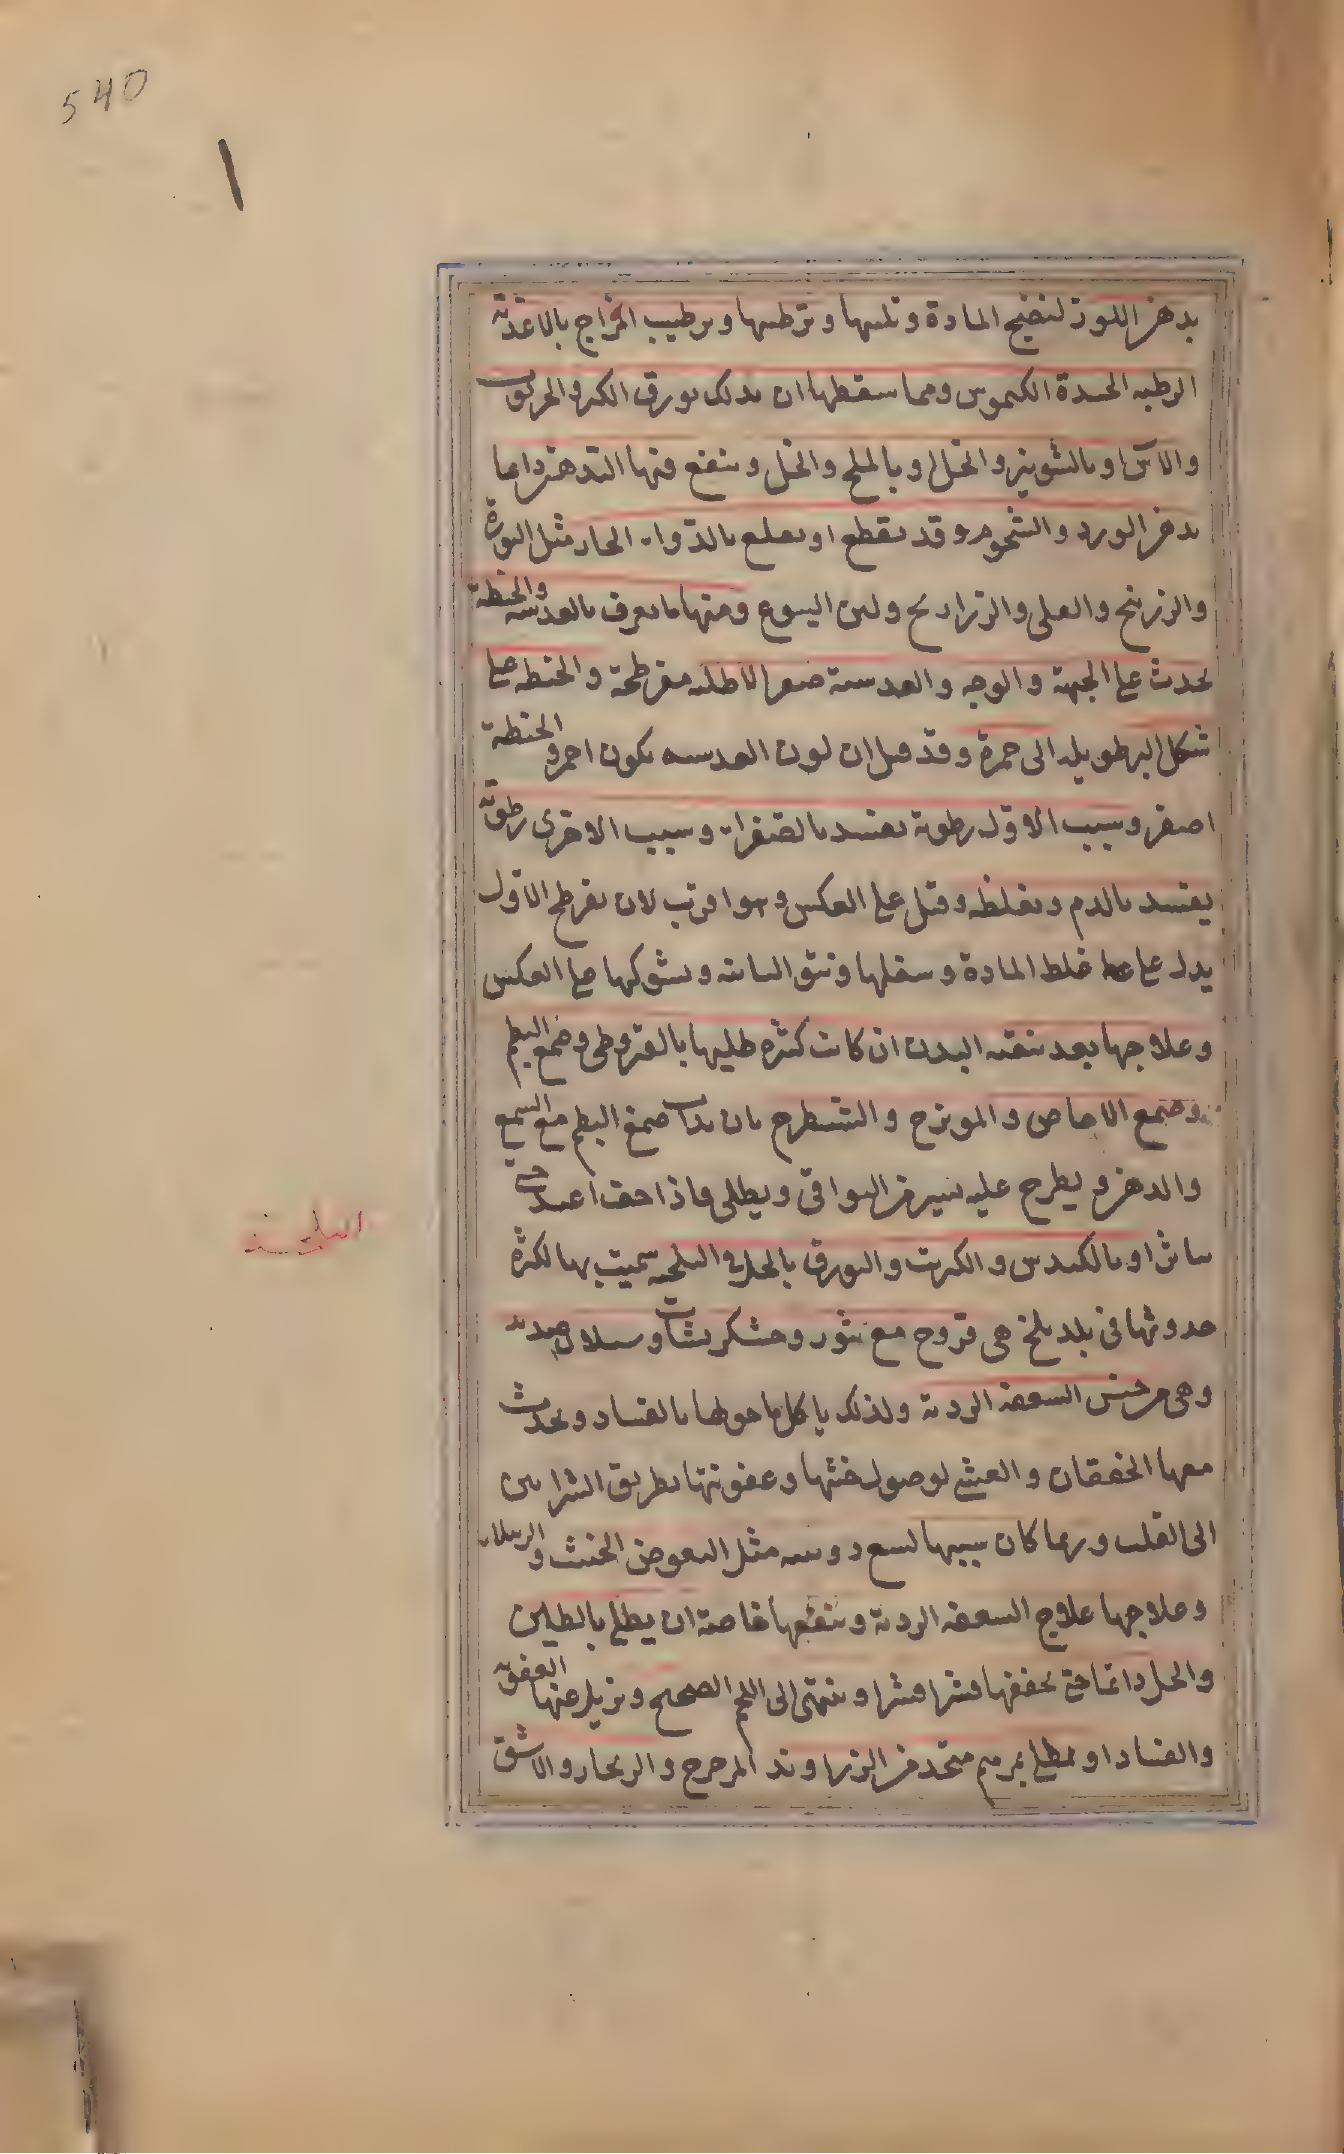 540
بدهن اللوز لنضج المادة وتلينها وترطبها وترطيب المزاج بالاغذية
الرطبه الجيدة الكيموس ومما يسقطها ان يدلك بورق الكبر والخرنوب
والآس او بالشونيز والخل او بالملح والخل وينفع فيها التدهين دايما
بدهن الورد والشحوم وقد يقطع او يقلع بالدواء الحار مثل النورة
والزرنيخ والقلى والزراريح ولبن اليتوع ومنها ما يعرف بالعدسية والحنطية
يحدث على الجبهة والوجه والعدسية صغر الاطليه مفرطحة والحنطيه على
شكل البر طويله الى حمرة وقد قيل ان لون العدسيه يكون احمر والحنطية
اصفر وسبب الاول رطوبة يفسد بالصفراء وسبب الاخرى رطوبة
يفسد بالدم ويغلظه وقيل على العكس وهو اقرب لان تفرطح الاول
يدل على غلظ المادة وسفلها ونتو الثانية وتشوكها على العكس
وعلاجها بعد تنقية البدن ان كانت كثره طليها بالقيروطى وصمغ البطم
وصمغ الاجاص والمويزج والشيطرج بان يذاب صمغ البطم مع الشمع
والدهن ويطرح عليه يسير من البواقى ويطلى فاذا جف اعيد حتى
يتناثر او بالكندس والكبريت والبورق بالخل فى البلخيه سميت بها لكثرة
حدوثها فى بلد بلخ هى قروح مع بثور وخشكريشات وسيلان صديد
وهى من جنس السعفه الردية ولذلك ياكل ما حولها بالفساد ويحدث
معها الخفقان والغشى لوصول خبثها وعفونتها بطريق الشرايين
الى القلب وربما كان سببها لسع دويبه مثل البعوض الخبيث والرتيلاء
وعلاجها علاج السعفه الردية وينفعها خاصة ان يطلى بالطين
والخل دائما حتى يجففها قشرا قشرا وينتهى الى اللحم الصحيح ويزيل عنها العفونة
والفساد او يطلى بمرهم متخذ من الزراوند المدحرج والزنجار والاشق
البلخية